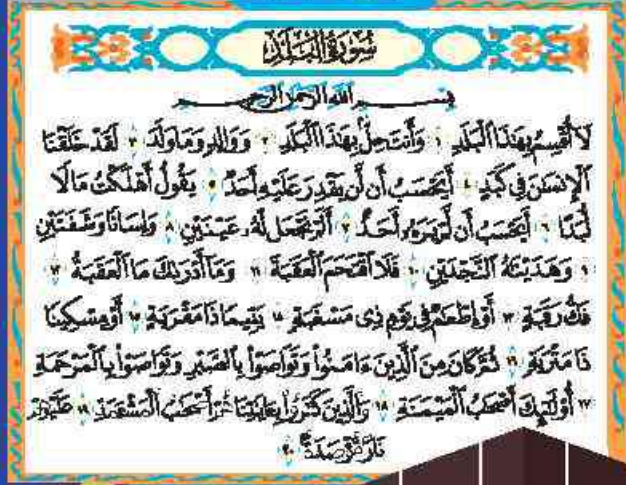 سُورَةُ الْبَلَدِ
بِسْمِ اللَّهِ الرَّحْمَٰنِ الرَّحِيمِ
لَآ أُقْسِمُ بِهَٰذَا ٱلْبَلَدِ ١ وَأَنتَ حِلٌّۢ بِهَٰذَا ٱلْبَلَدِ ٢ وَوَالِدٍ وَمَا وَلَدَ ٣ لَقَدْ خَلَقْنَا
ٱلْإِنسَٰنَ فِى كَبَدٍ ٤ أَيَحْسَبُ أَن لَّن يَقْدِرَ عَلَيْهِ أَحَدٌ ٥ يَقُولُ أَهْلَكْتُ مَالًا
لُّبَدًا ٦ أَيَحْسَبُ أَن لَّمْ يَرَهُۥٓ أَحَدٌ ٧ أَلَمْ نَجْعَل لَّهُۥ عَيْنَيْنِ ٨ وَلِسَانًا وَشَفَتَيْنِ
٩ وَهَدَيْنَٰهُ ٱلنَّجْدَيْنِ ١٠ فَلَا ٱقْتَحَمَ ٱلْعَقَبَةَ ١١ وَمَآ أَدْرَىٰكَ مَا ٱلْعَقَبَةُ ١٢
فَكُّ رَقَبَةٍ ١٣ أَوْ إِطْعَٰمٌ فِى يَوْمٍ ذِى مَسْغَبَةٍ ١٤ يَتِيمًا ذَا مَقْرَبَةٍ ١٥ أَوْ مِسْكِينًا
ذَا مَتْرَبَةٍ ١٦ ثُمَّ كَانَ مِنَ ٱلَّذِينَ ءَامَنُوا۟ وَتَوَاصَوْا۟ بِٱلصَّبْرِ وَتَوَاصَوْا۟ بِٱلْمَرْحَمَةِ
١٧ أُو۟لَٰٓئِكَ أَصْحَٰبُ ٱلْمَيْمَنَةِ ١٨ وَٱلَّذِينَ كَفَرُوا۟ بِـَٔايَٰتِنَا هُمْ أَصْحَٰبُ ٱلْمَشْـَٔمَةِ ١٩ عَلَيْهِمْ
نَارٌ مُّؤْصَدَةٌۢ ٢٠